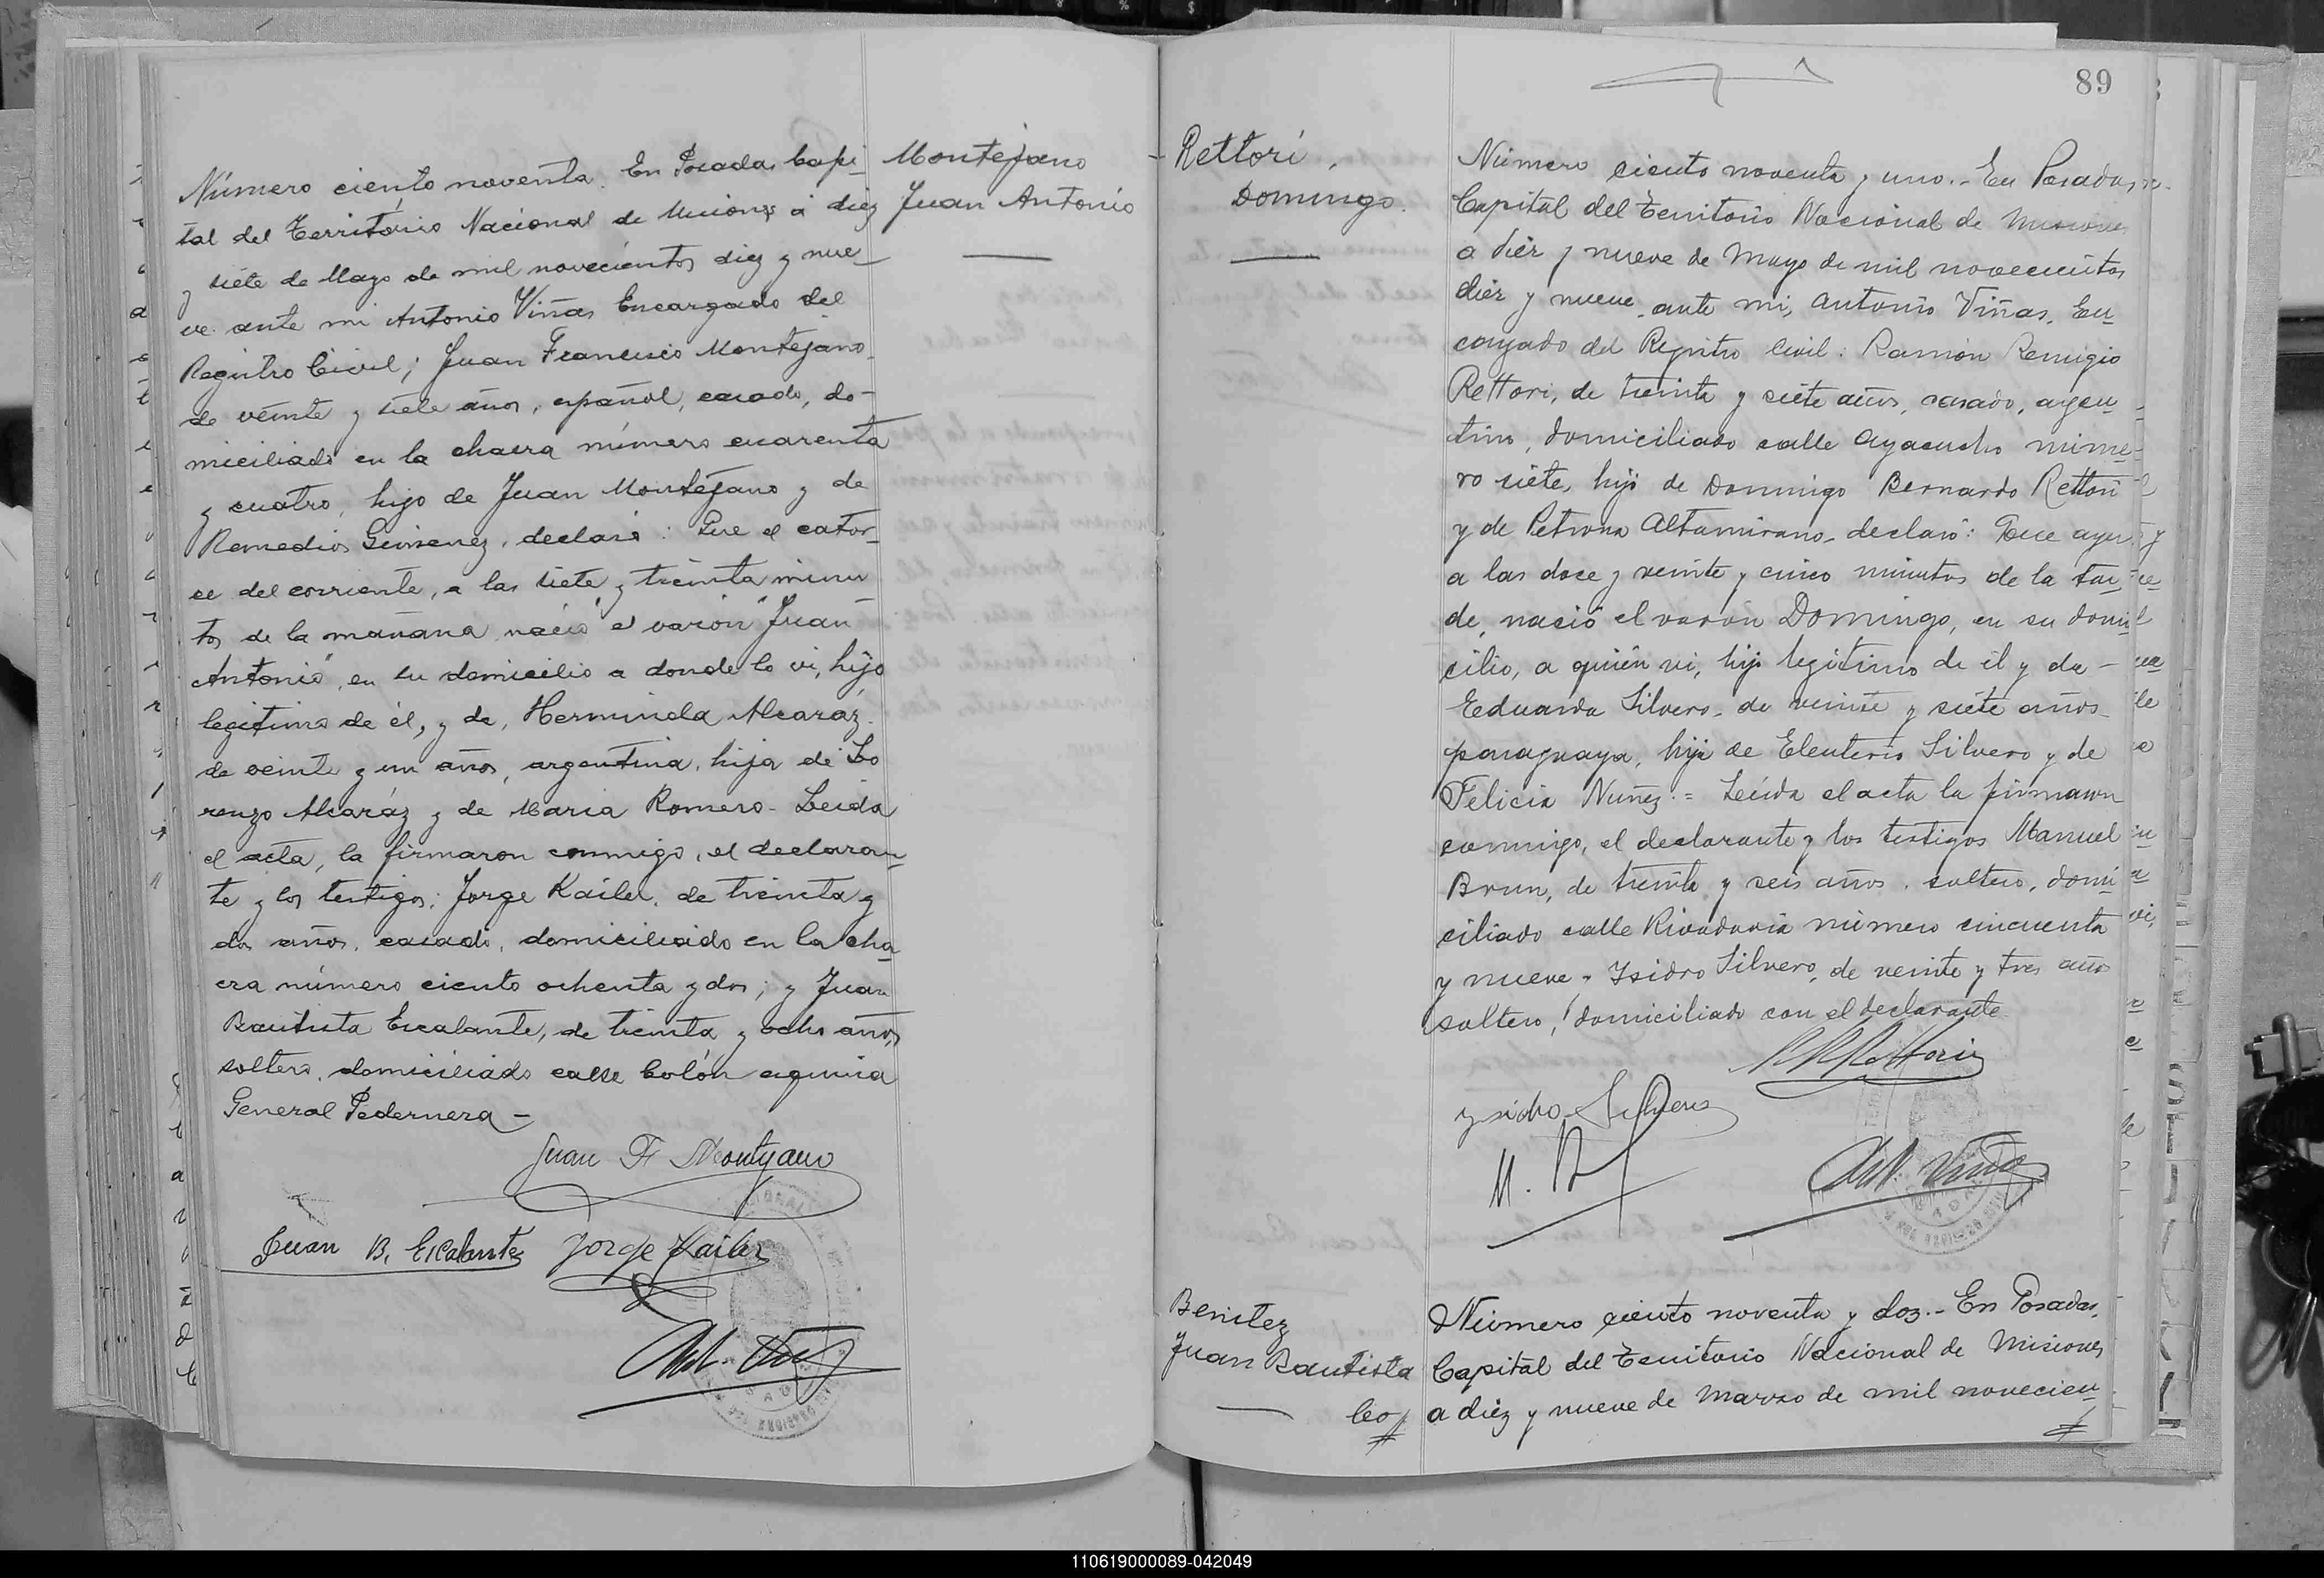 Número ciento noventa. En Posadas Capi-
tal del Territorio Nacional de Misiones a diez
y siete de Mayo de mil novecientos diez y nue-
ve ante mi Antonio Viñas Encargado del
Registro Civil; Juan Francisco Montejano
de veinte y siete años, español, casado, do-
miciliado en la chacra número cuarenta
y cuatro, hijo de Juan Montejano y de
Remedios Gimenez, declaró: Que el cator-
ce del corriente, a las siete y treinta minu-
tos de la mañana nació el varón "Juan
Antonio", en su domicilio a donde lo vi, hijo
legitimo de él, y de, Herminda Alcaráz
de veinte y un años, argentina, hija de Lo
renzo Alcaráz y de Maria Romero - Leida
el acta, la firmaron conmigo, el declaran-
te y los testigos: Jorge Kailer, de treinta y
dos años, casado, domiciliado en la cha-
cra número ciento ochenta y dos; y Juan
Bautista Escalante, de treinta y ocho años,
soltero, domiciliado calle Colón esquina
General Pedernera -
Juan F. Montejano
Juan B. Escalante Jorge Kailer
Ant. Viñas
Montejano
Juan Antonio
89
Rettori,
Domingo.
Número ciento noventa y uno.- En Posadas,
Capital del Territorio Nacional de Misiones
a diéz y nueve de Mayo de mil novecientos
diéz y nueve, ante mi, Antonio Viñas, En-
cargado del Registro Civil: Ramón Remigio
Rettori, de treinta y siete años, casado, argen-
tino, domiciliado calle Ayacucho núme-
ro siete, hijo de Domingo Bernardo Rettori
y de Petrona Altamirano, declaró: Que ayer
a las doce y veinte y cinco minutos de la tar-
de, nació el varón Domingo, en su domi-
cilio, a quién vi, hijo legitimo de él y de -
Eduarda Silvero, de veinte y siete años
paraguaya, hija de Eleuterio Silvero y de
Felicia Nuñez.= Leida el acta la firmaron
conmigo, el declarante y los testigos Manuel
Brun, de treinta y seis años, soltero, domi-
ciliado calle Rivadavia número cincuenta
y nueve - Ysidro Silvero, de veinte y tres años
soltero, domiciliado con el declarante
R R Rettori
Ysidro Silvero
M. B
Ant. Viñas
Benitez
Juan Bautista
Leo//
Número ciento noventa y dos.- En Posadas,
Capital del Territorio Nacional de Misiones
a diéz y nueve de Marzo de mil novecien-
110619000089-042049